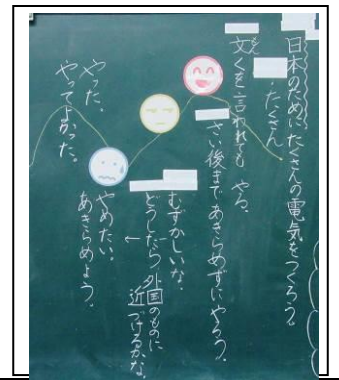 日本のためにたくさんの電気をつくろう。
たくさん
文くを言われても やる。
もん
さい後まであきらめずにやろう。
むずかしいな。
どうしたら外国のものに
近づけるかな。
←
やめたい。
あきらめよう。
やった。
やってよかった。